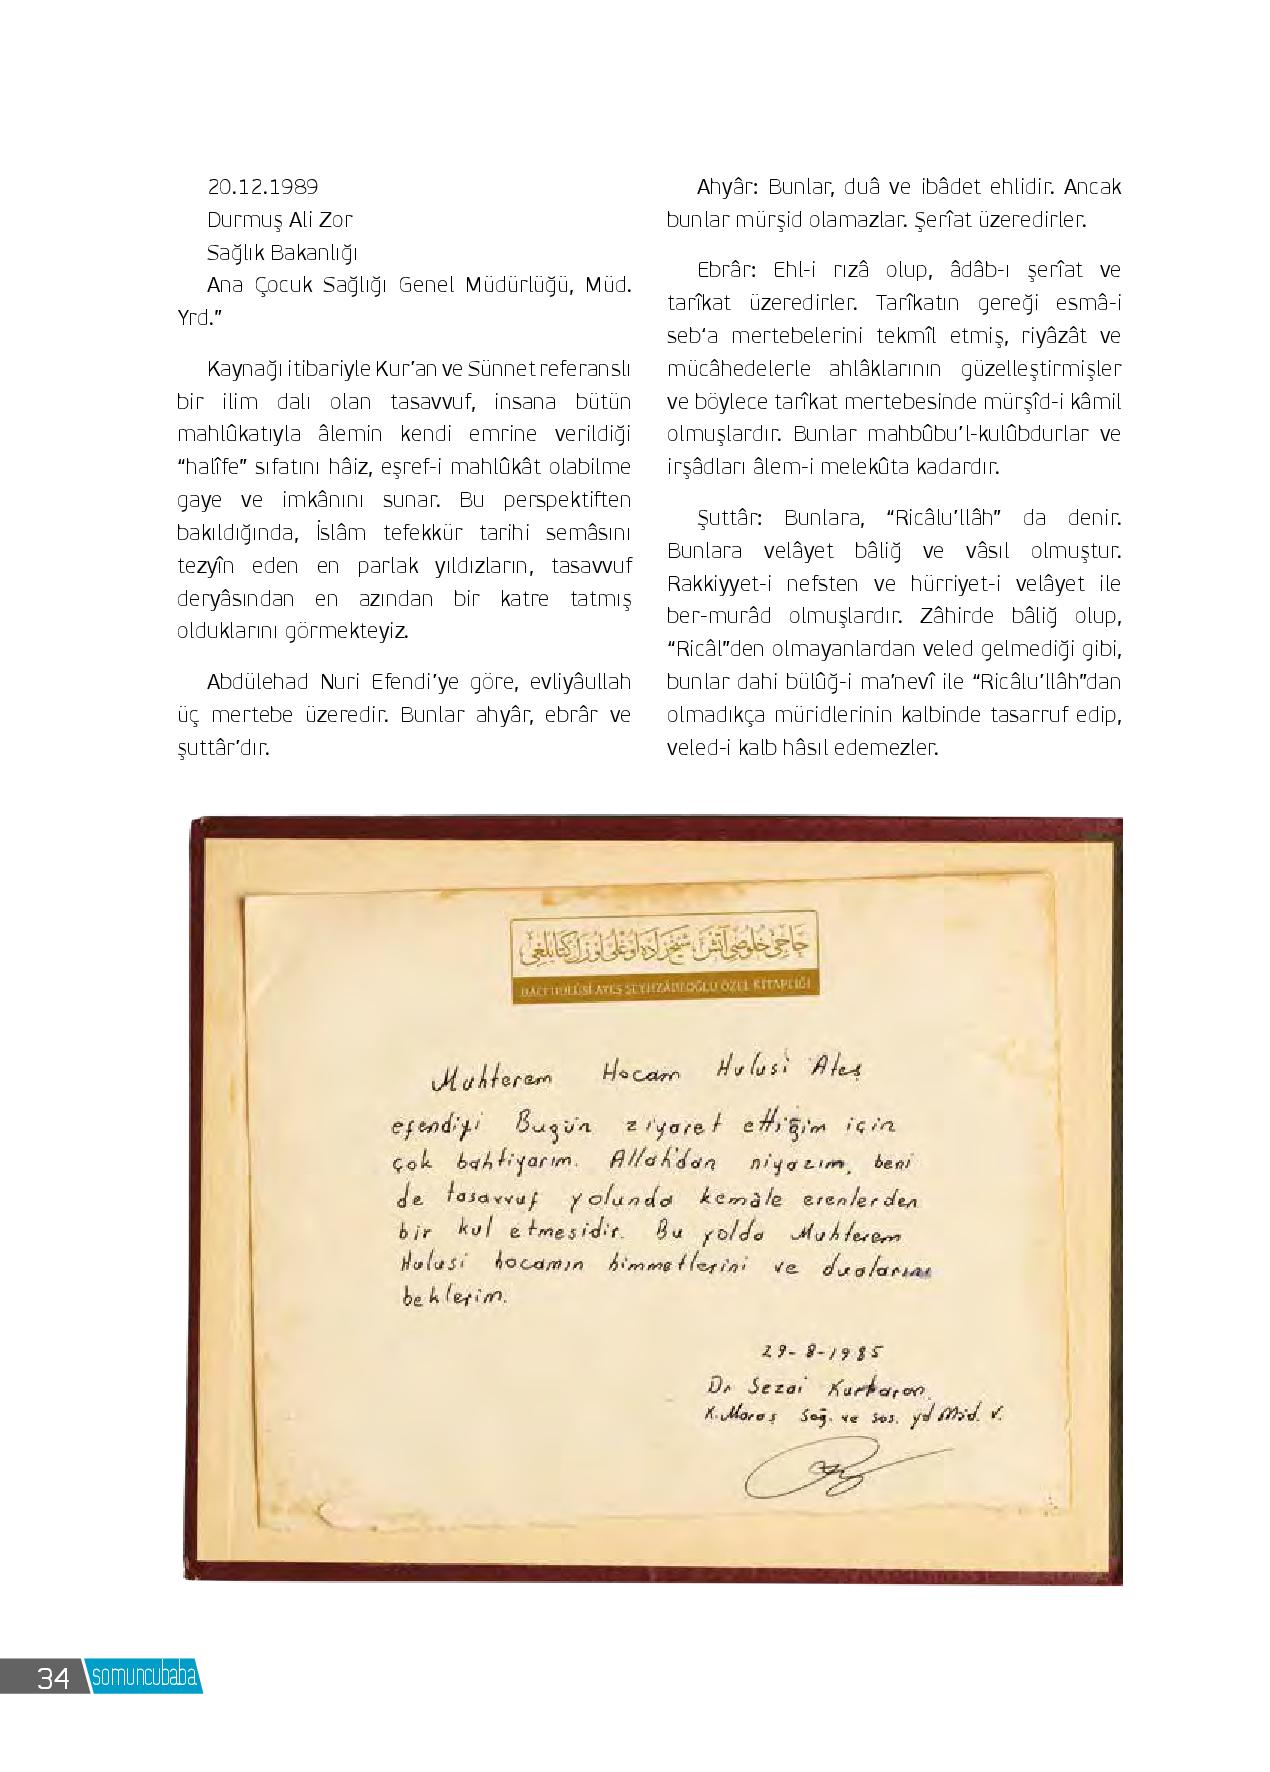 20.12.1989
Durmuş Ali Zor
Sağlık Bakanlığı
Ana Çocuk Sağlığı Genel Müdürlüğü, Müd.
Yrd.”
Kaynağı itibariyle Kur’an ve Sünnet referanslı
bir ilim dalı olan tasavvuf, insana bütün
mahlûkatıyla âlemin kendi emrine verildiği
“halîfe” sıfatını hâiz, eşref-i mahlûkât olabilme
gaye ve imkânını sunar. Bu perspektiften
bakıldığında, İslâm tefekkür tarihi semâsını
tezyîn eden en parlak yıldızların, tasavvuf
deryâsından en azından bir katre tatmış
olduklarını görmekteyiz.
Abdülehad Nuri Efendi’ye göre, evliyâullah
üç mertebe üzeredir. Bunlar ahyâr, ebrâr ve
şuttâr’dır.
Ahyâr: Bunlar, duâ ve ibâdet ehlidir. Ancak
bunlar mürşid olamazlar. Şerîat üzeredirler.
Ebrâr: Ehl-i rızâ olup, âdâb-ı şerîat ve
tarîkat üzeredirler. Tarîkatın gereği esmâ-i
seb‘a mertebelerini tekmîl etmiş, riyâzât ve
mücâhedelerle ahlâklarının güzelleştirmişler
ve böylece tarîkat mertebesinde mürşîd-i kâmil
olmuşlardır. Bunlar mahbûbu’l-kulûbdurlar ve
irşâdları âlem-i melekûta kadardır.
Şuttâr: Bunlara, “Ricâlu’llâh” da denir.
Bunlara velâyet bâliğ ve vâsıl olmuştur.
Rakkiyyet-i nefsten ve hürriyet-i velâyet ile
ber-murâd olmuşlardır. Zâhirde bâliğ olup,
“Ricâl”den olmayanlardan veled gelmediği gibi,
bunlar dahi bülûğ-i ma’nevî ile “Ricâlu’llâh”dan
olmadıkça müridlerinin kalbinde tasarruf edip,
veled-i kalb hâsıl edemezler.
حاجى خلوصى آتش شيخزاده اوغلى اوزل كتابلغى
HACI HULÛSİ ATEŞ ŞEYHZÂDEOĞLU ÖZEL KİTAPLIĞI
Muhterem Hocam Hulusi Ateş
efendiyi Bugün ziyaret ettiğim için
çok bahtiyarım. Allah'dan niyazım, beni
de tasavvuf yolunda kemâle erenlerden
bir kul etmesidir. Bu yolda Muhterem
Hulusi hocamın himmetlerini ve dualarını
beklerim.
29-8-1985
Dr Sezai Kurtaran
K.Maraş Sağ. ve sos. yd Müd. V.
34 somuncubaba